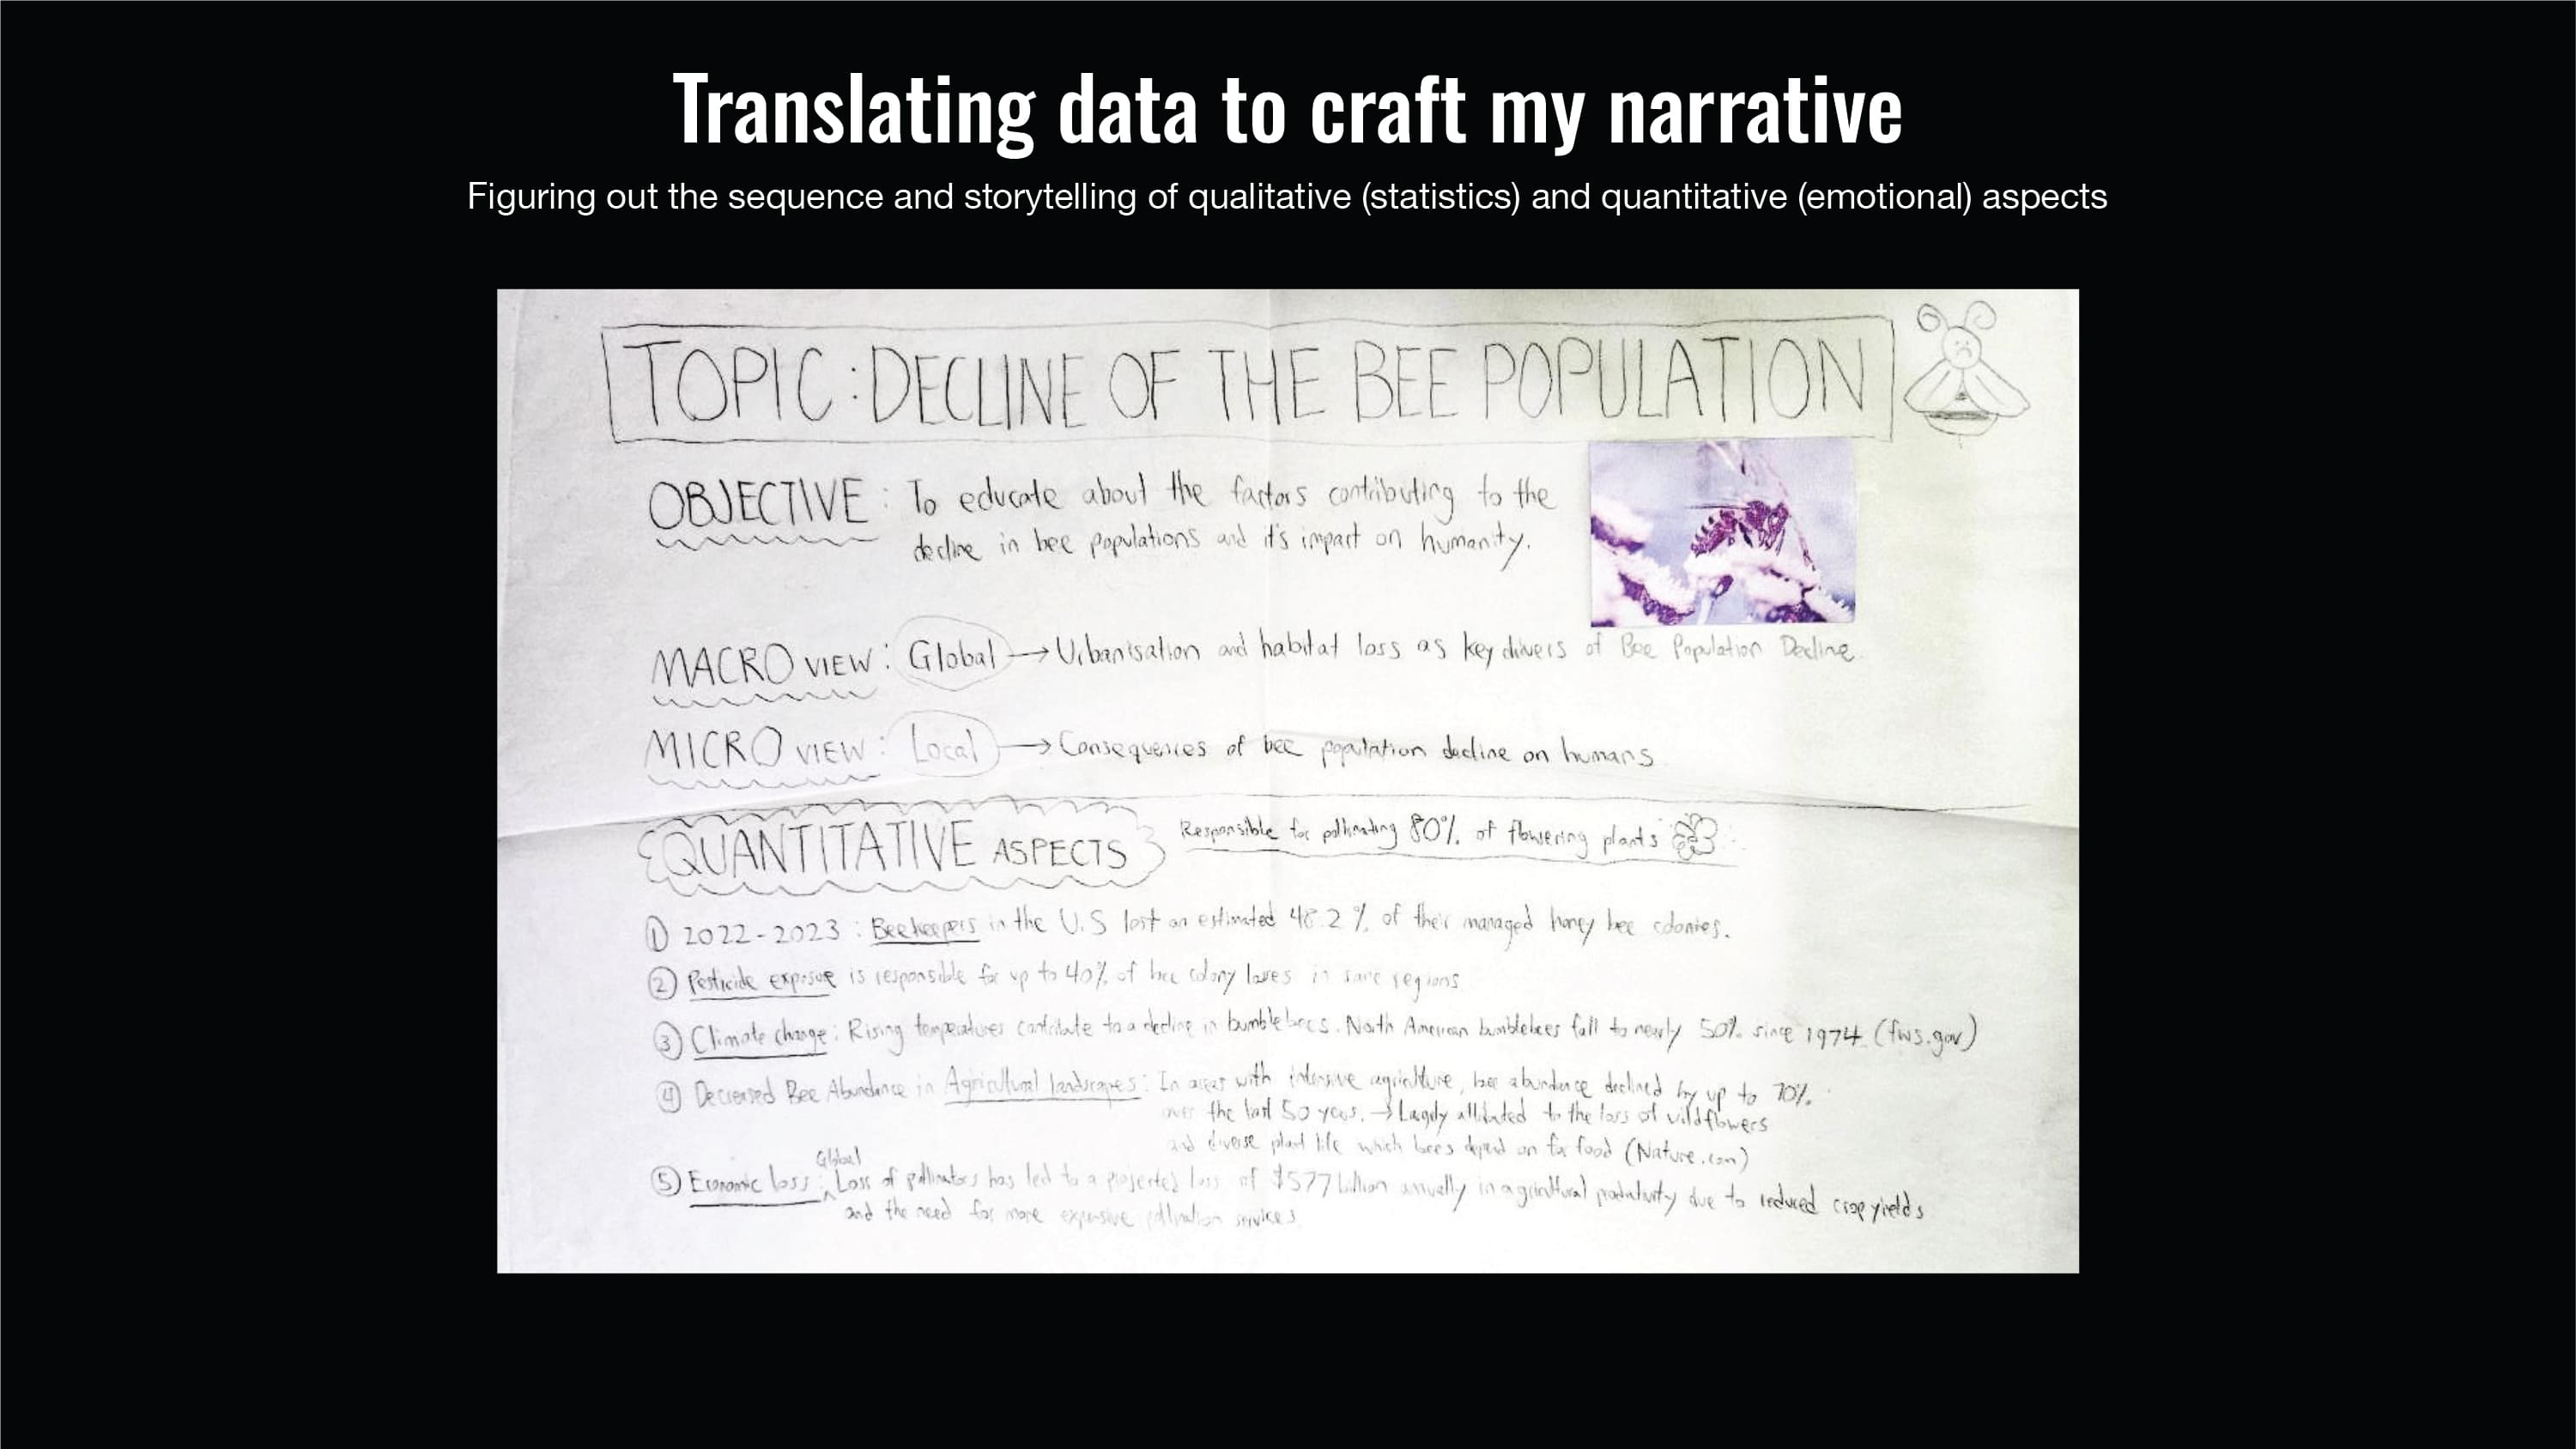 Translating data to craft my narrative
Figuring out the sequence and storytelling of qualitative (statistics) and quantitative (emotional) aspects
TOPIC: DECLINE OF THE BEE POPULATION
OBJECTIVE: To educate about the factors contributing to the
decline in bee populations and it's impact on humanity.
MACRO VIEW: Global → Urbanisation and habitat loss as key drivers of Bee Population Decline.
MICRO VIEW: Local → Consequences of bee population decline on humans
QUANTITATIVE ASPECTS Responsible for pollinating 80% of flowering plants
① 2022-2023: Beekeepers in the U.S lost an estimated 48.2% of their managed honey bee colonies.
② Pesticide exposure is responsible for up to 40% of bee colony losses in some regions
③ Climate change: Rising temperatures contribute to a decline in bumblebees. North American bumblebees fall to nearly 50% since 1974 (fws.gov)
④ Decreased Bee Abundance in Agricultural landscapes: In areas with intensive agriculture, bee abundance declined by up to 70%
over the last 50 years. → Largely attributed to the loss of wildflowers
and diverse plant life which bees depend on for food (Nature.com)
Global
⑤ Economic loss: Loss of pollinators has led to a projected loss of $577 billion annually in agricultural productivity due to reduced crop yields
and the need for more expensive pollination services